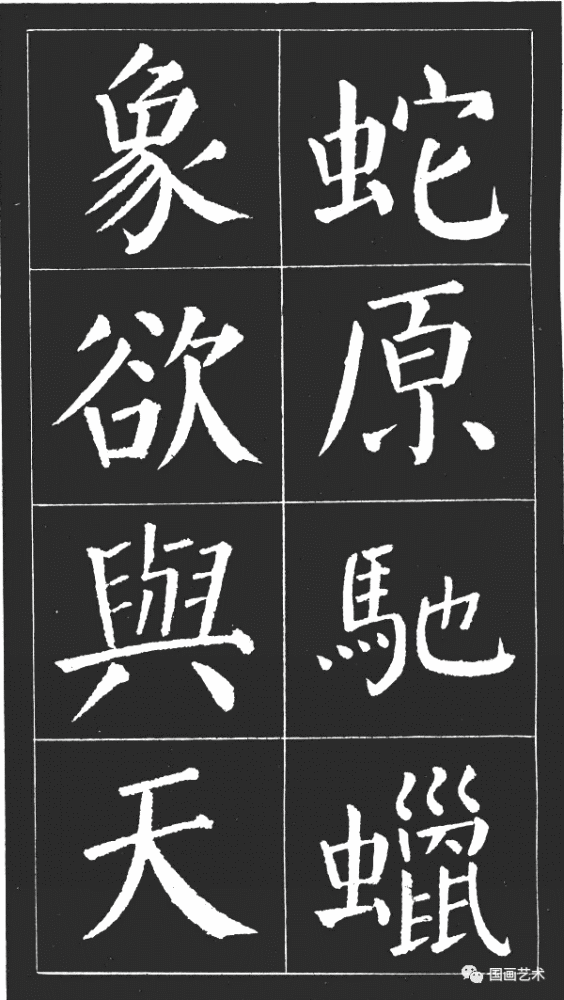 蛇原馳蠟
象欲與天
国画艺术